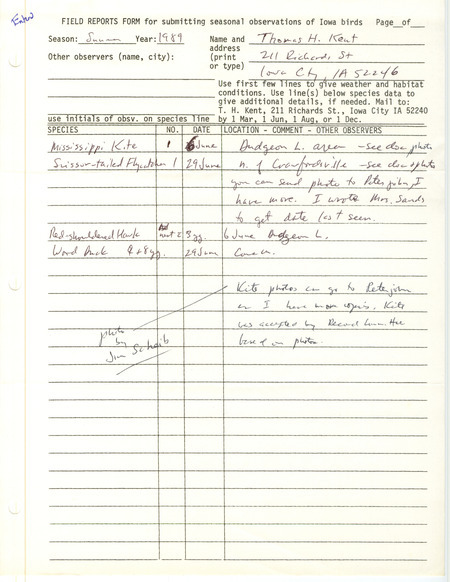 Enter
FIELD REPORTS FORM for submitting seasonal observations of Iowa birds Page__of__
Season: Summ Year: 1989 Name and Thomas H. Kent
Other observers (name, city): address 211 Richards St
(print
or type) Iowa City, IA 52246
Use first few lines to give weather and habitat
conditions. Use line(s) below species data to
give additional details, if needed. Mail to:
T. H. Kent, 211 Richards St., Iowa City IA 52240
use initials of obsv. on species line by 1 Mar, 1 Jun, 1 Aug, or 1 Dec.
SPECIES NO. DATE LOCATION - COMMENT - OTHER OBSERVERS
Mississippi Kite 1 6 June Dudgeon L. area - see doc photo
Scissor-tailed Flycatcher 1 29 June n. of Crawfordsville - see doc photo
you can send photo to Peterjohn, I
have more. I wrote Mrs. Sands
to get date last seen.
Red-shouldered Hawk nest 2 yg. 6 June Dudgeon L.
Wood Duck 29 June
Kite photos can go to Peterjohn
as I have more copies. Kite
was accepted by Record Committee
based on photo.
photo
by
Jim Scheib